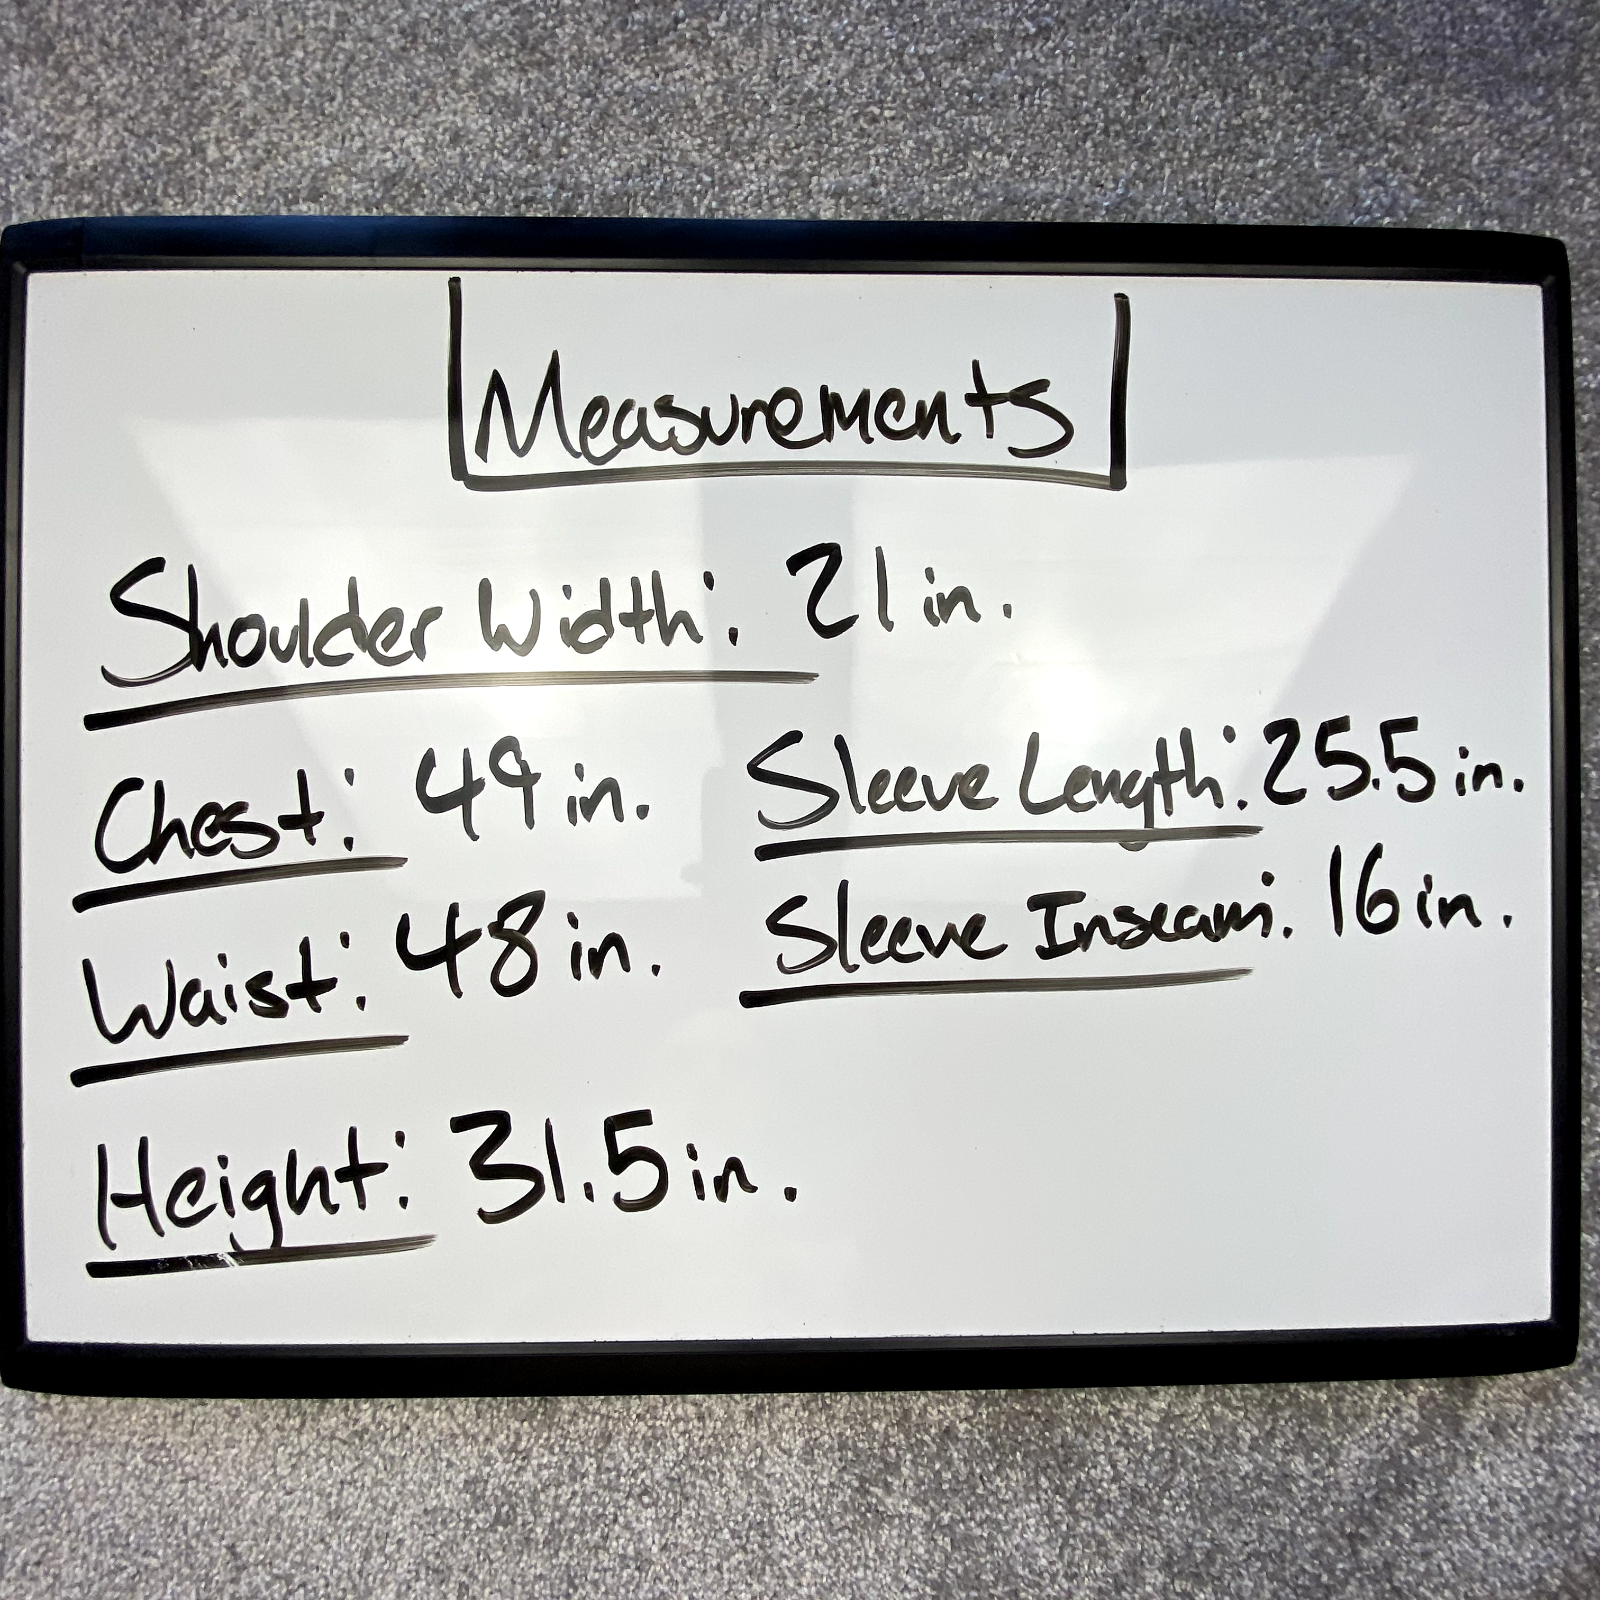 Measurements
Shoulder Width: 21 in.
Chest: 49 in.
Sleeve Length: 25.5 in.
Waist: 48 in.
Sleeve Inseam: 16 in.
Height: 31.5 in.